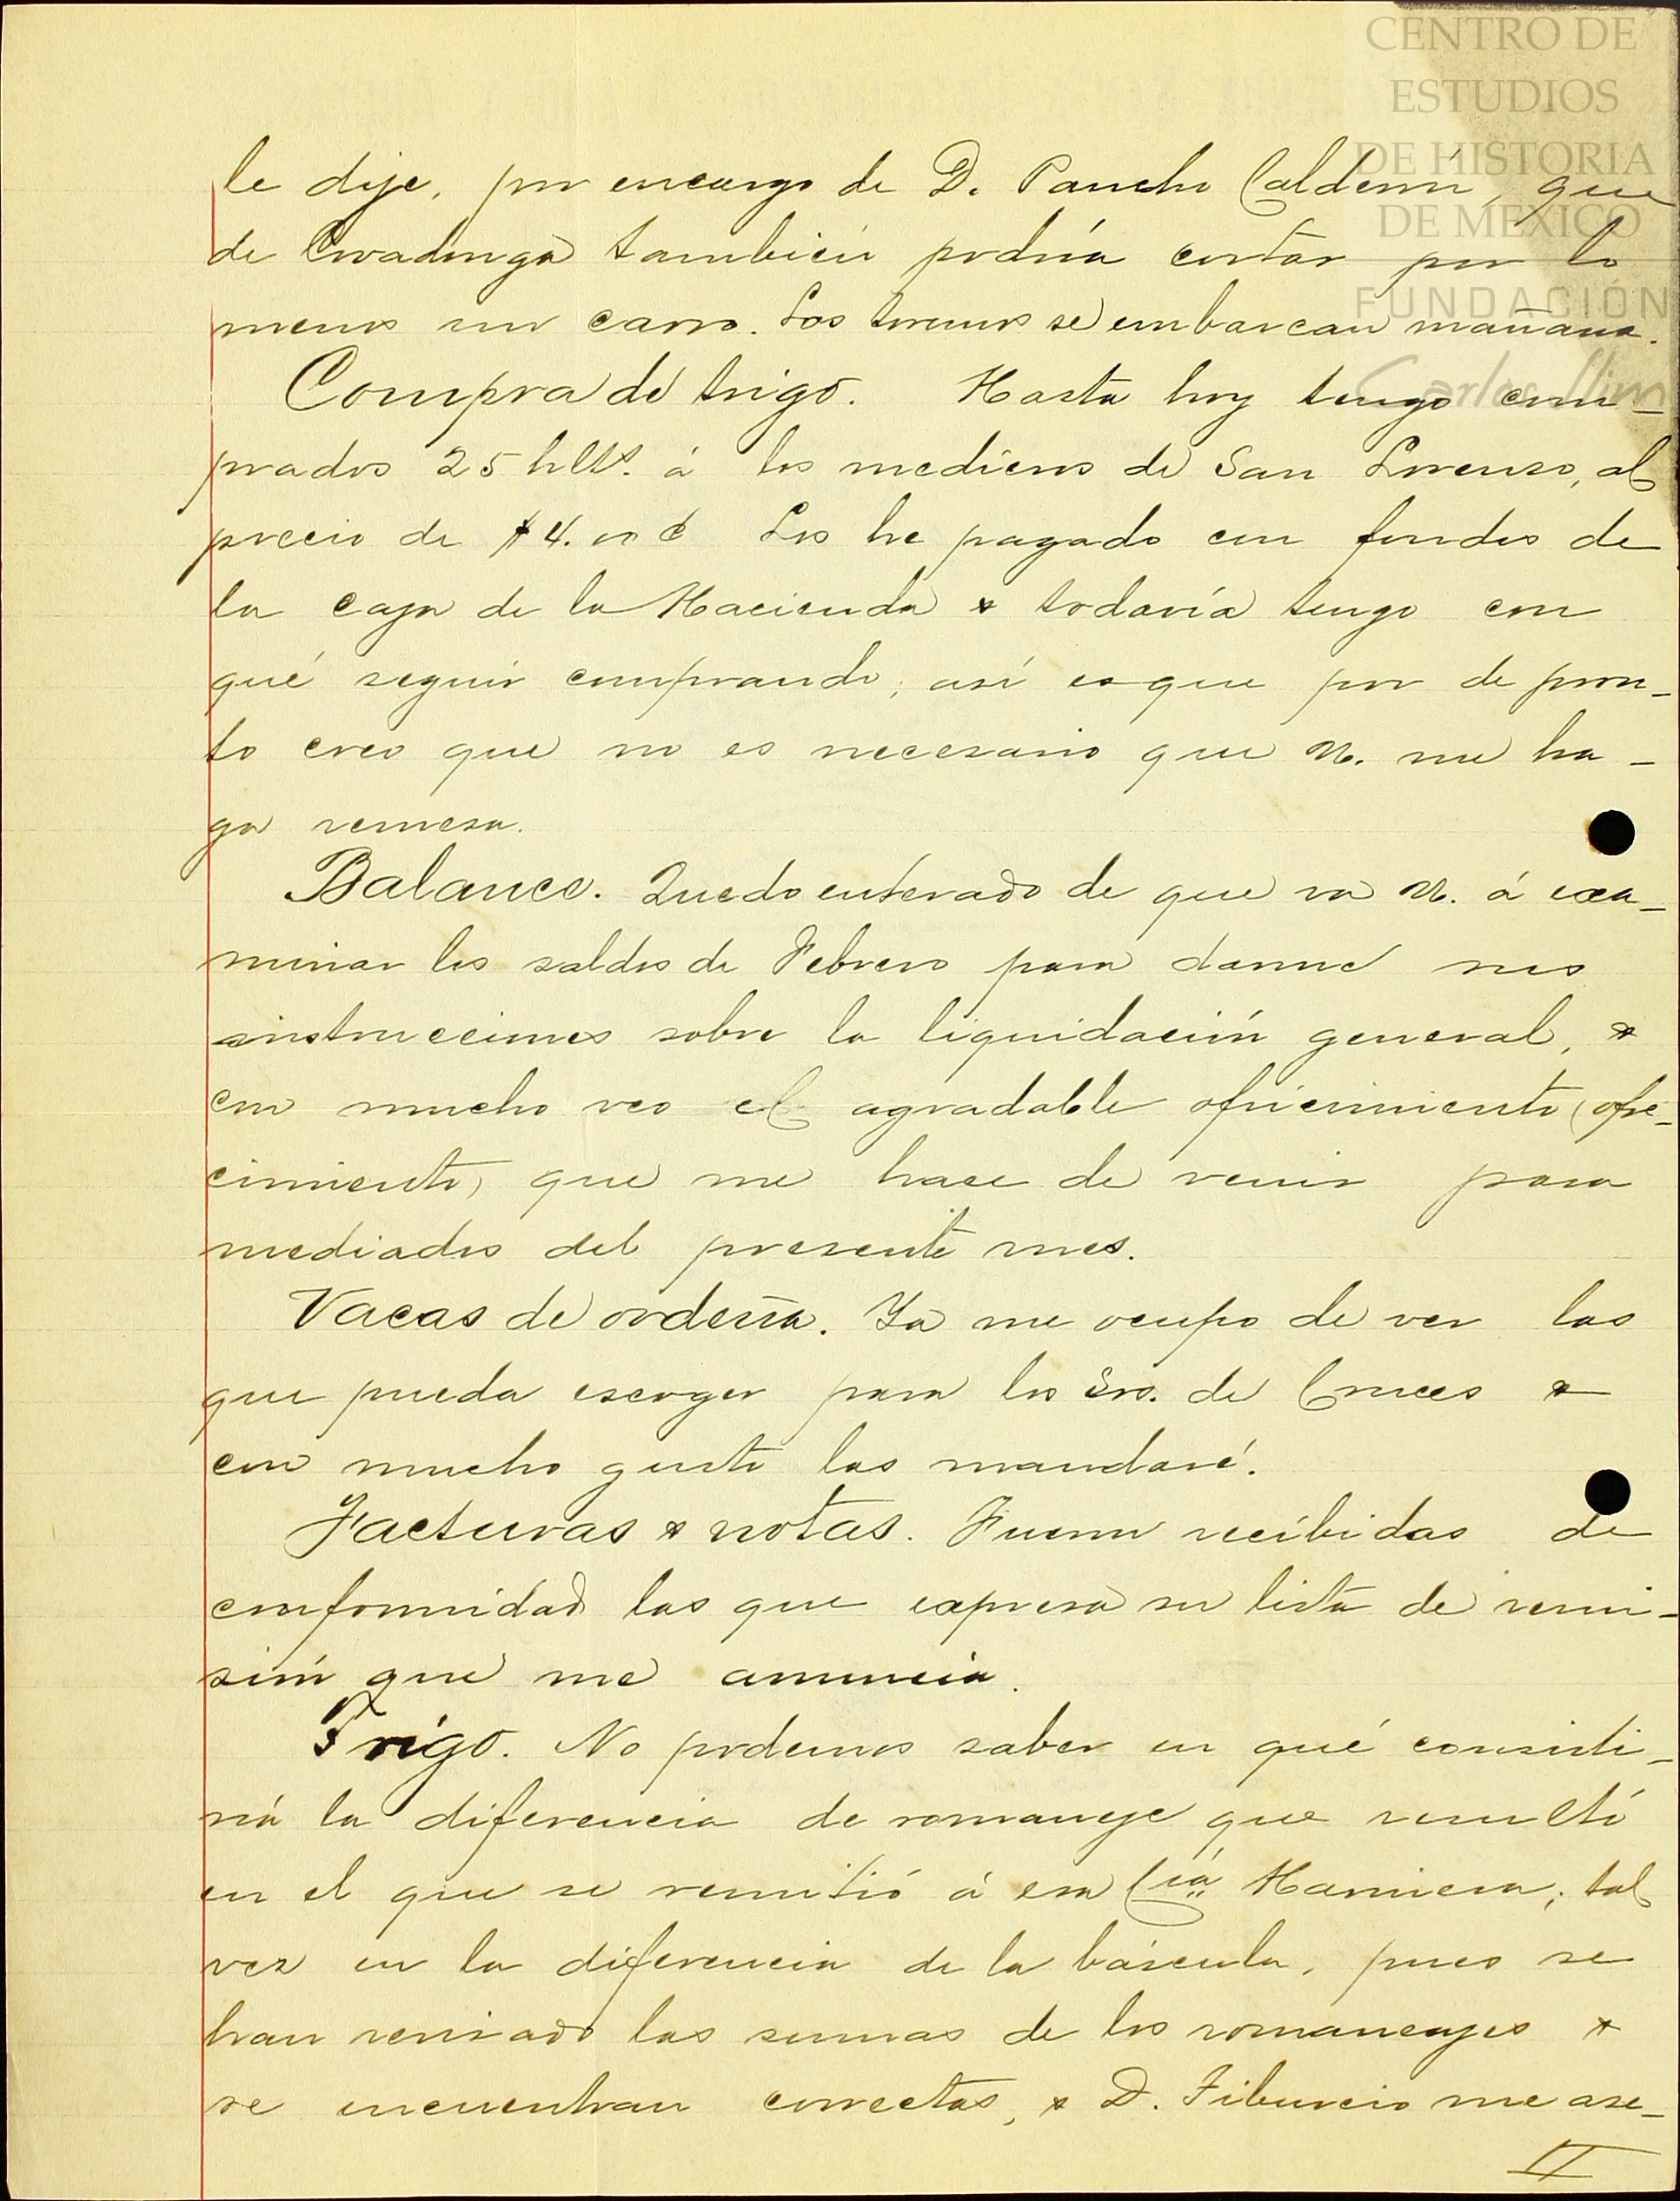 CENTRO DE
ESTUDIOS
DE HISTORIA
DE MÉXICO
FUNDACIÓN
Carlos Slim
le dije, por encargo de D. Pancho Calderón, que
de Covadonga también podría cortar por lo
menos un carro. Los toreros se embarcan mañana.
Compra de trigo. Hasta hoy tengo com-
prados 25 hlts. á los medieros de San Lorenzo, al
precio de $4.00 ¢ Los he pagado con fondos de
la caja de la Hacienda & todavía tengo con
qué seguir comprando; así es que por de pron-
to creo que no es necesario que U. me ha-
ga remesa.
Balance. Quedo enterado de que va U. á exa-
minar los saldos de Febrero para darme sus
instrucciones sobre la liquidación general, &
con mucho veo el agradable ofricimiento (ofre-
cimiento) que me hace de venir para
mediados del presente mes.
Vacas de ordeña. Ya me ocupo de ver las
que pueda escoger para los Srs. de Cruces &
con mucho gusto las mandaré.
Facturas & notas. Fueron recibidas de
conformidad las que expresa su lista de remi-
sión que me anuncia.
Trigo. No podemos saber en qué consisti-
rá la diferencia de romaneje que resultó
en el que se remitió á esa Cía Harinera; tal
vez en la diferencia de la báscula, pues se
han revisado las sumas de los romaneajes &
se encuentran correctas, & D. Tiburcio me ase-
II